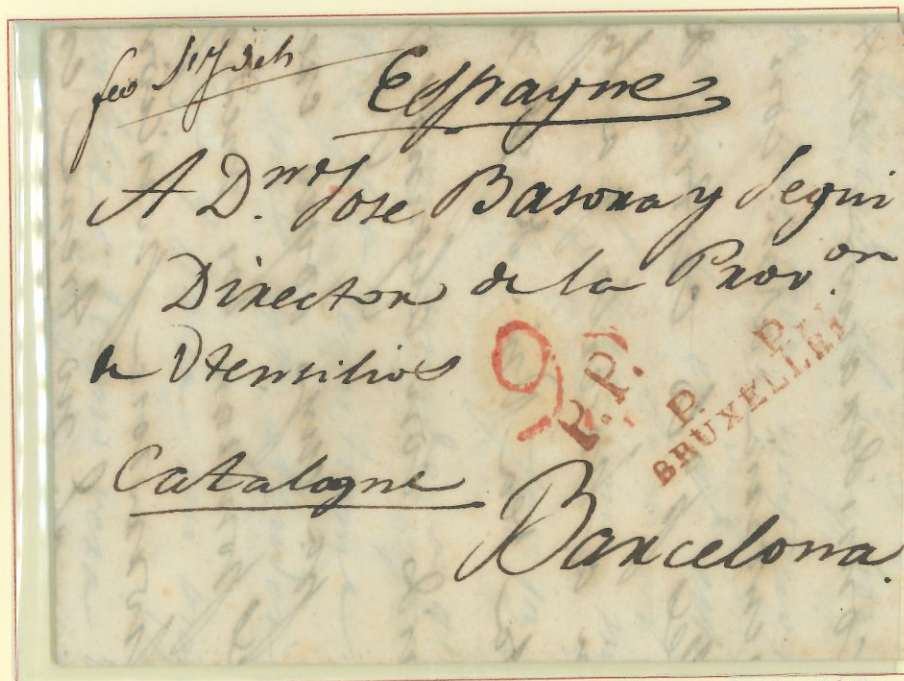 Espagne
A D.n Jose Basora y Segui
Director de la Prov.on
de Utensilios
9
P.P.
P. P.
BRUXELLES
Catalogne
Barcelona